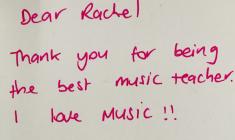 Dear Rachel
Thank you for being
the best music teacher.
I love MUSIC !!